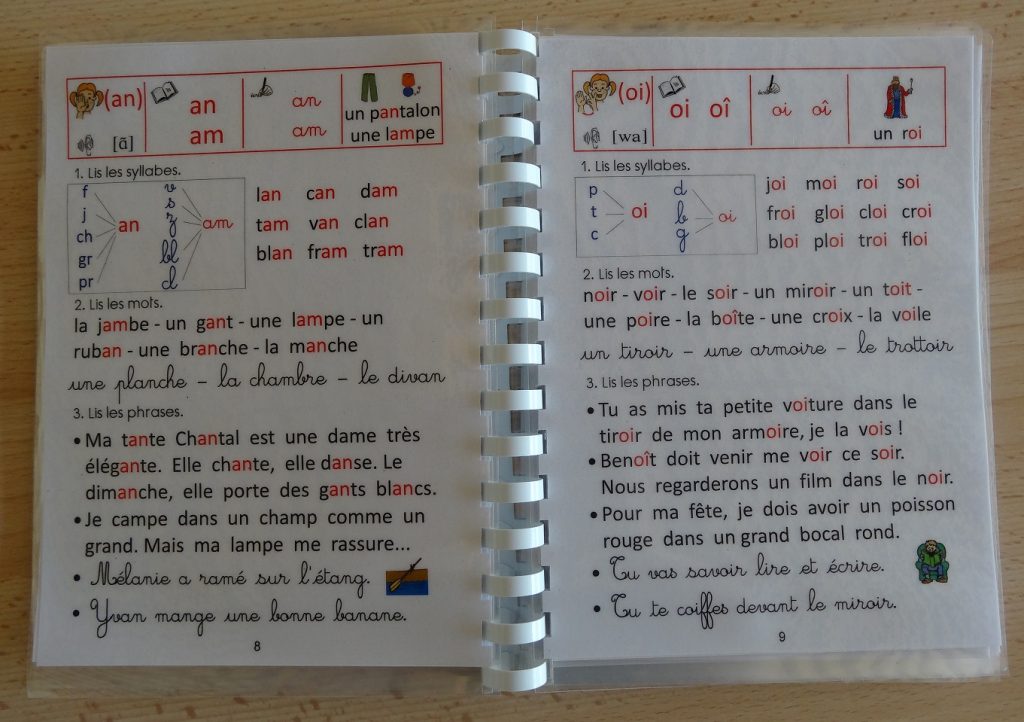 (an)
[ã]
an
am
an
am
un pantalon
une lampe
1. Lis les syllabes.
f
j
ch
gr
pr
an
v
s
z
bl
d
am
lan can dam
tam van clan
blan fram tram
2. Lis les mots.
la jambe - un gant - une lampe - un
ruban - une branche - la manche
une planche – la chambre – le divan
3. Lis les phrases.
• Ma tante Chantal est une dame très
élégante. Elle chante, elle danse. Le
dimanche, elle porte des gants blancs.
• Je campe dans un champ comme un
grand. Mais ma lampe me rassure...
• Mélanie a ramé sur l'étang.
• Yvan mange une bonne banane.
8
(oi)
[wa]
oi oî
oi oî
un roi
1. Lis les syllabes.
p
t
c
oi
d
b
g
oi
joi moi roi soi
froi gloi cloi croi
bloi ploi troi floi
2. Lis les mots.
noir - voir - le soir - un miroir - un toit -
une poire - la boîte - une croix - la voile
un tiroir – une armoire – le trottoir
3. Lis les phrases.
• Tu as mis ta petite voiture dans le
tiroir de mon armoire, je la vois !
• Benoît doit venir me voir ce soir.
Nous regarderons un film dans le noir.
• Pour ma fête, je dois avoir un poisson
rouge dans un grand bocal rond.
• Tu vas savoir lire et écrire.
• Tu te coiffes devant le miroir.
9